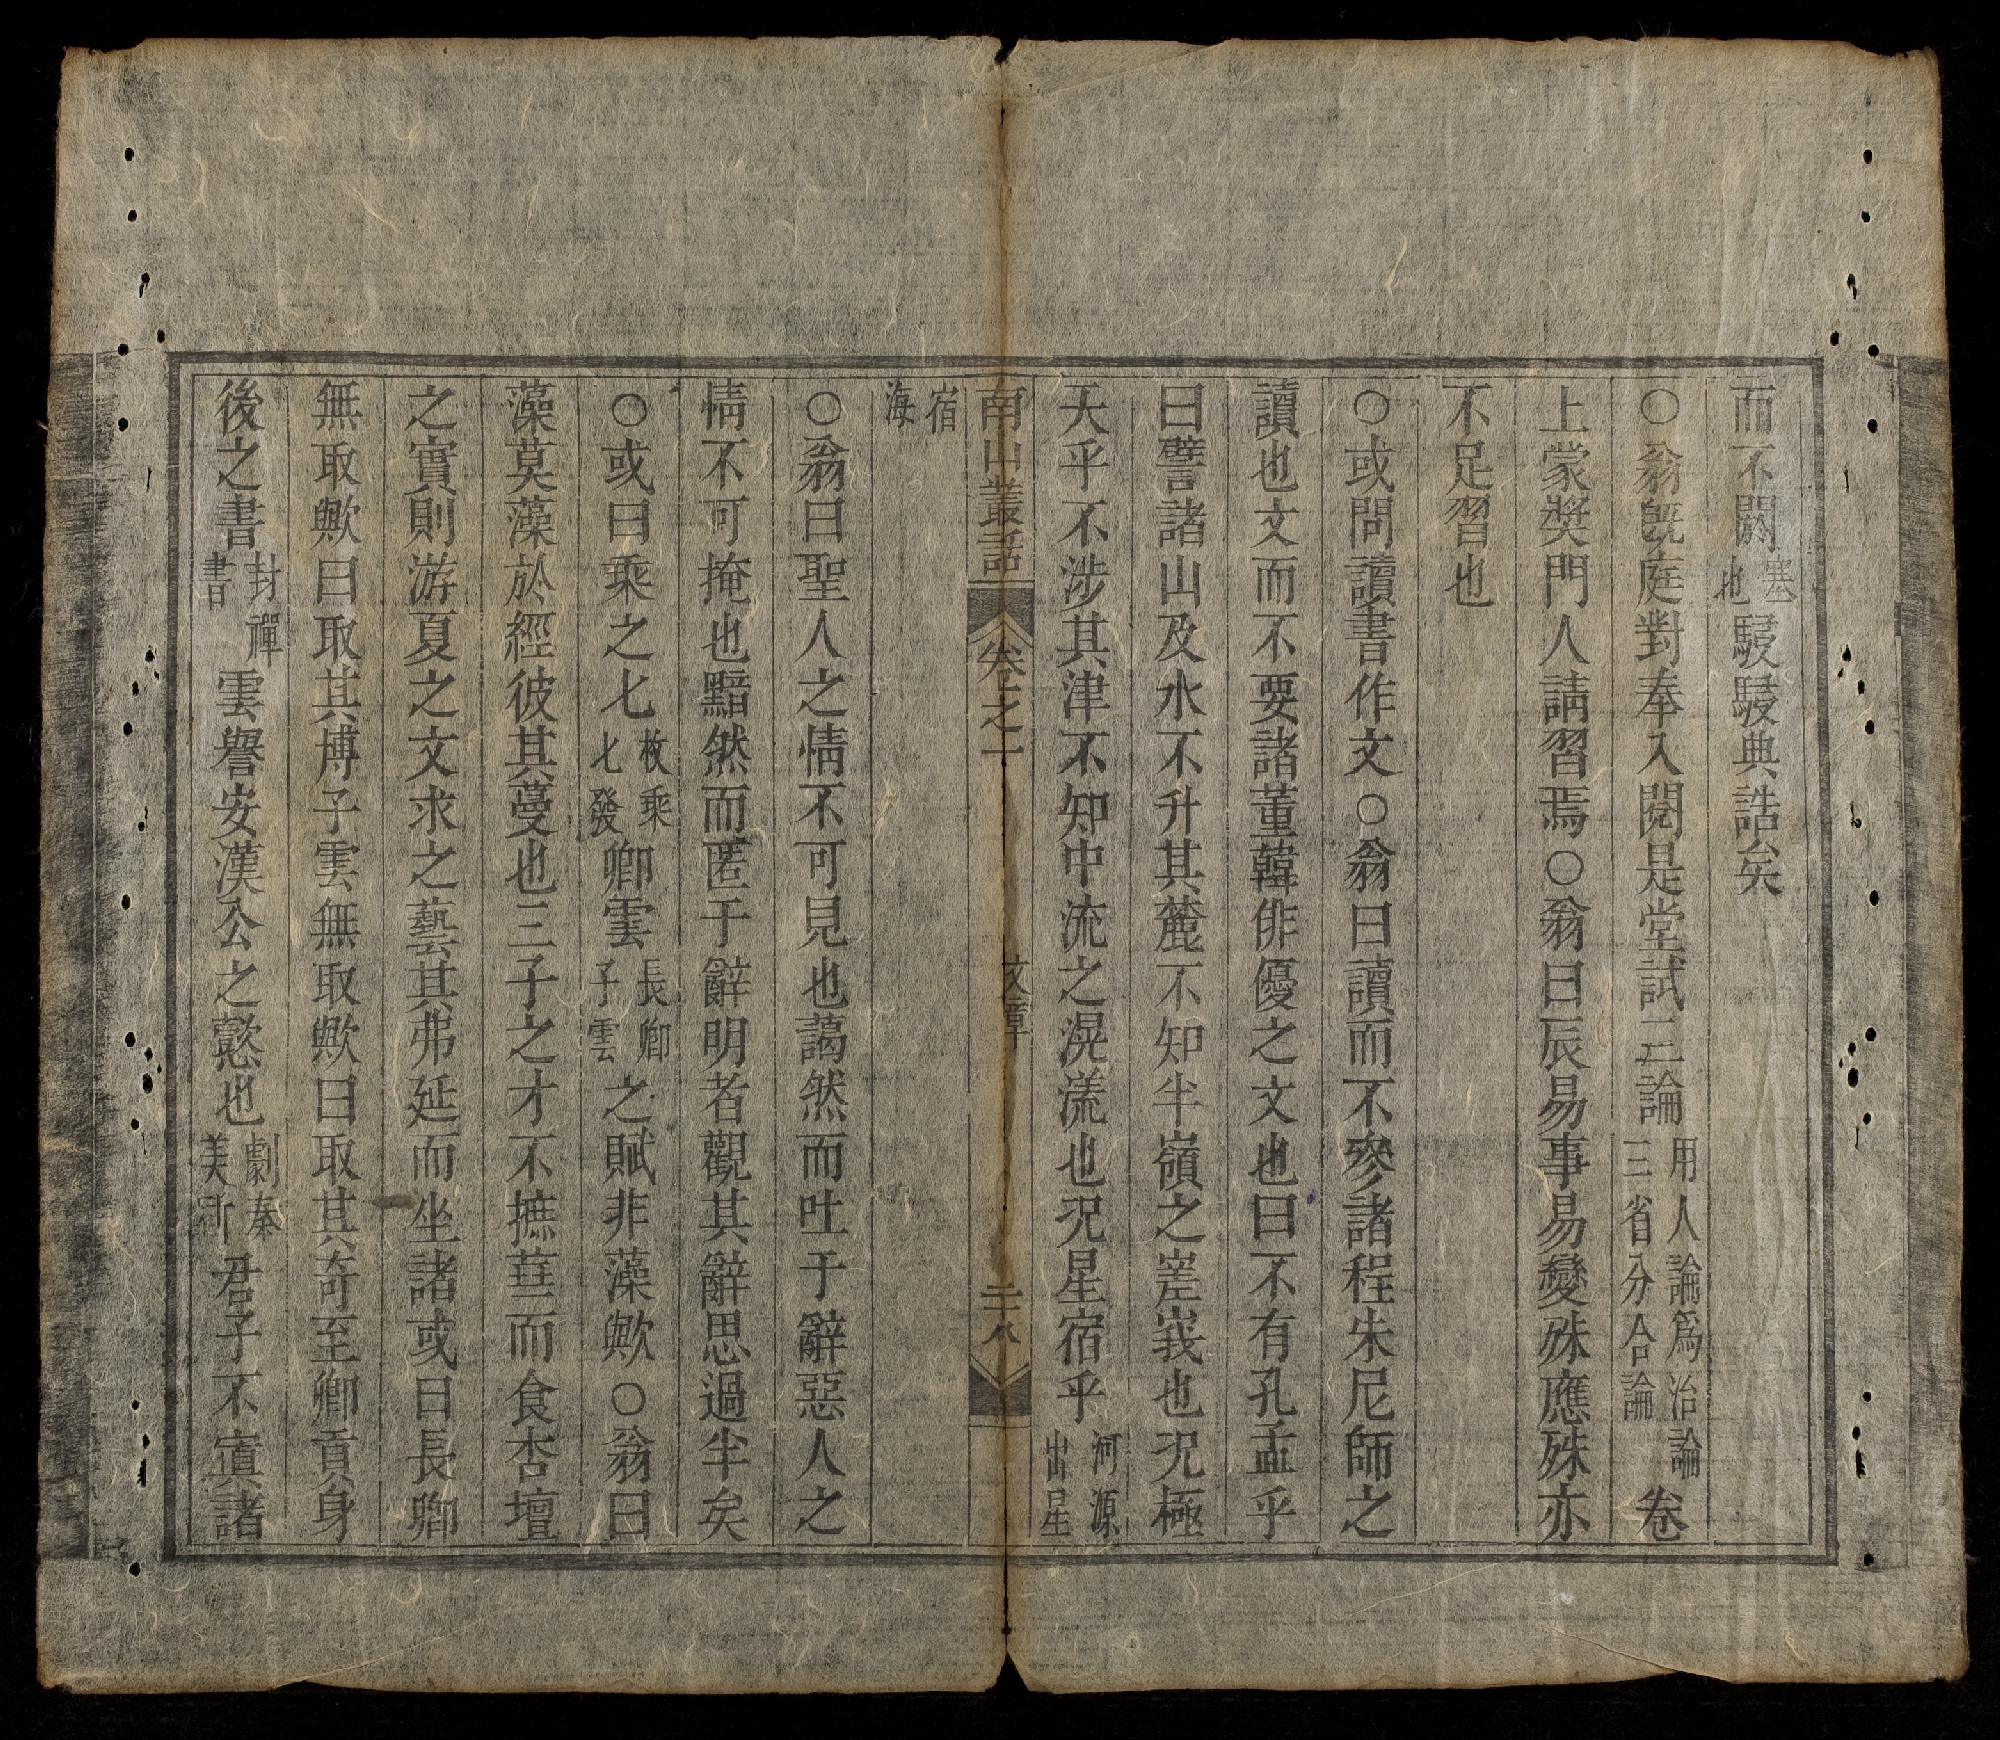 而不闕塞也駸駸典誥矣
○翁旣庭對奉入閱是堂試二論用人論爲治論三省分合論卷
上蒙奬門人請習焉○翁曰辰易事易變殊應殊亦
不足習也
○或問讀書作文○翁曰讀而不參諸程朱尼師之
讀也文而不要諸董韓俳優之文也曰不有孔孟乎
曰譬諸山及水不升其麓不知半嶺之嵳峩也况極
天乎不涉其津不知中流之滉瀁也况星宿乎河源出星
宿海
南山叢話 卷之一 文章 二十八
○翁曰聖人之情不可見也藹然而吐于辭惡人之
情不可掩也黯然而匿于辭明者觀其辭思過半矣
○或曰乘之七枚乘七發卿雲長卿子雲之賦非藻歟○翁曰
藻莫藻於經彼其蔓也三子之才不摭華而食杏壇
之實則游夏之文求之藝其弗延而坐諸或曰長卿
無取歟曰取其博子雲無取歟曰取其奇至卿貢身
後之書封禪書雲譽安漢公之懿也劇秦美新君子不寘諸